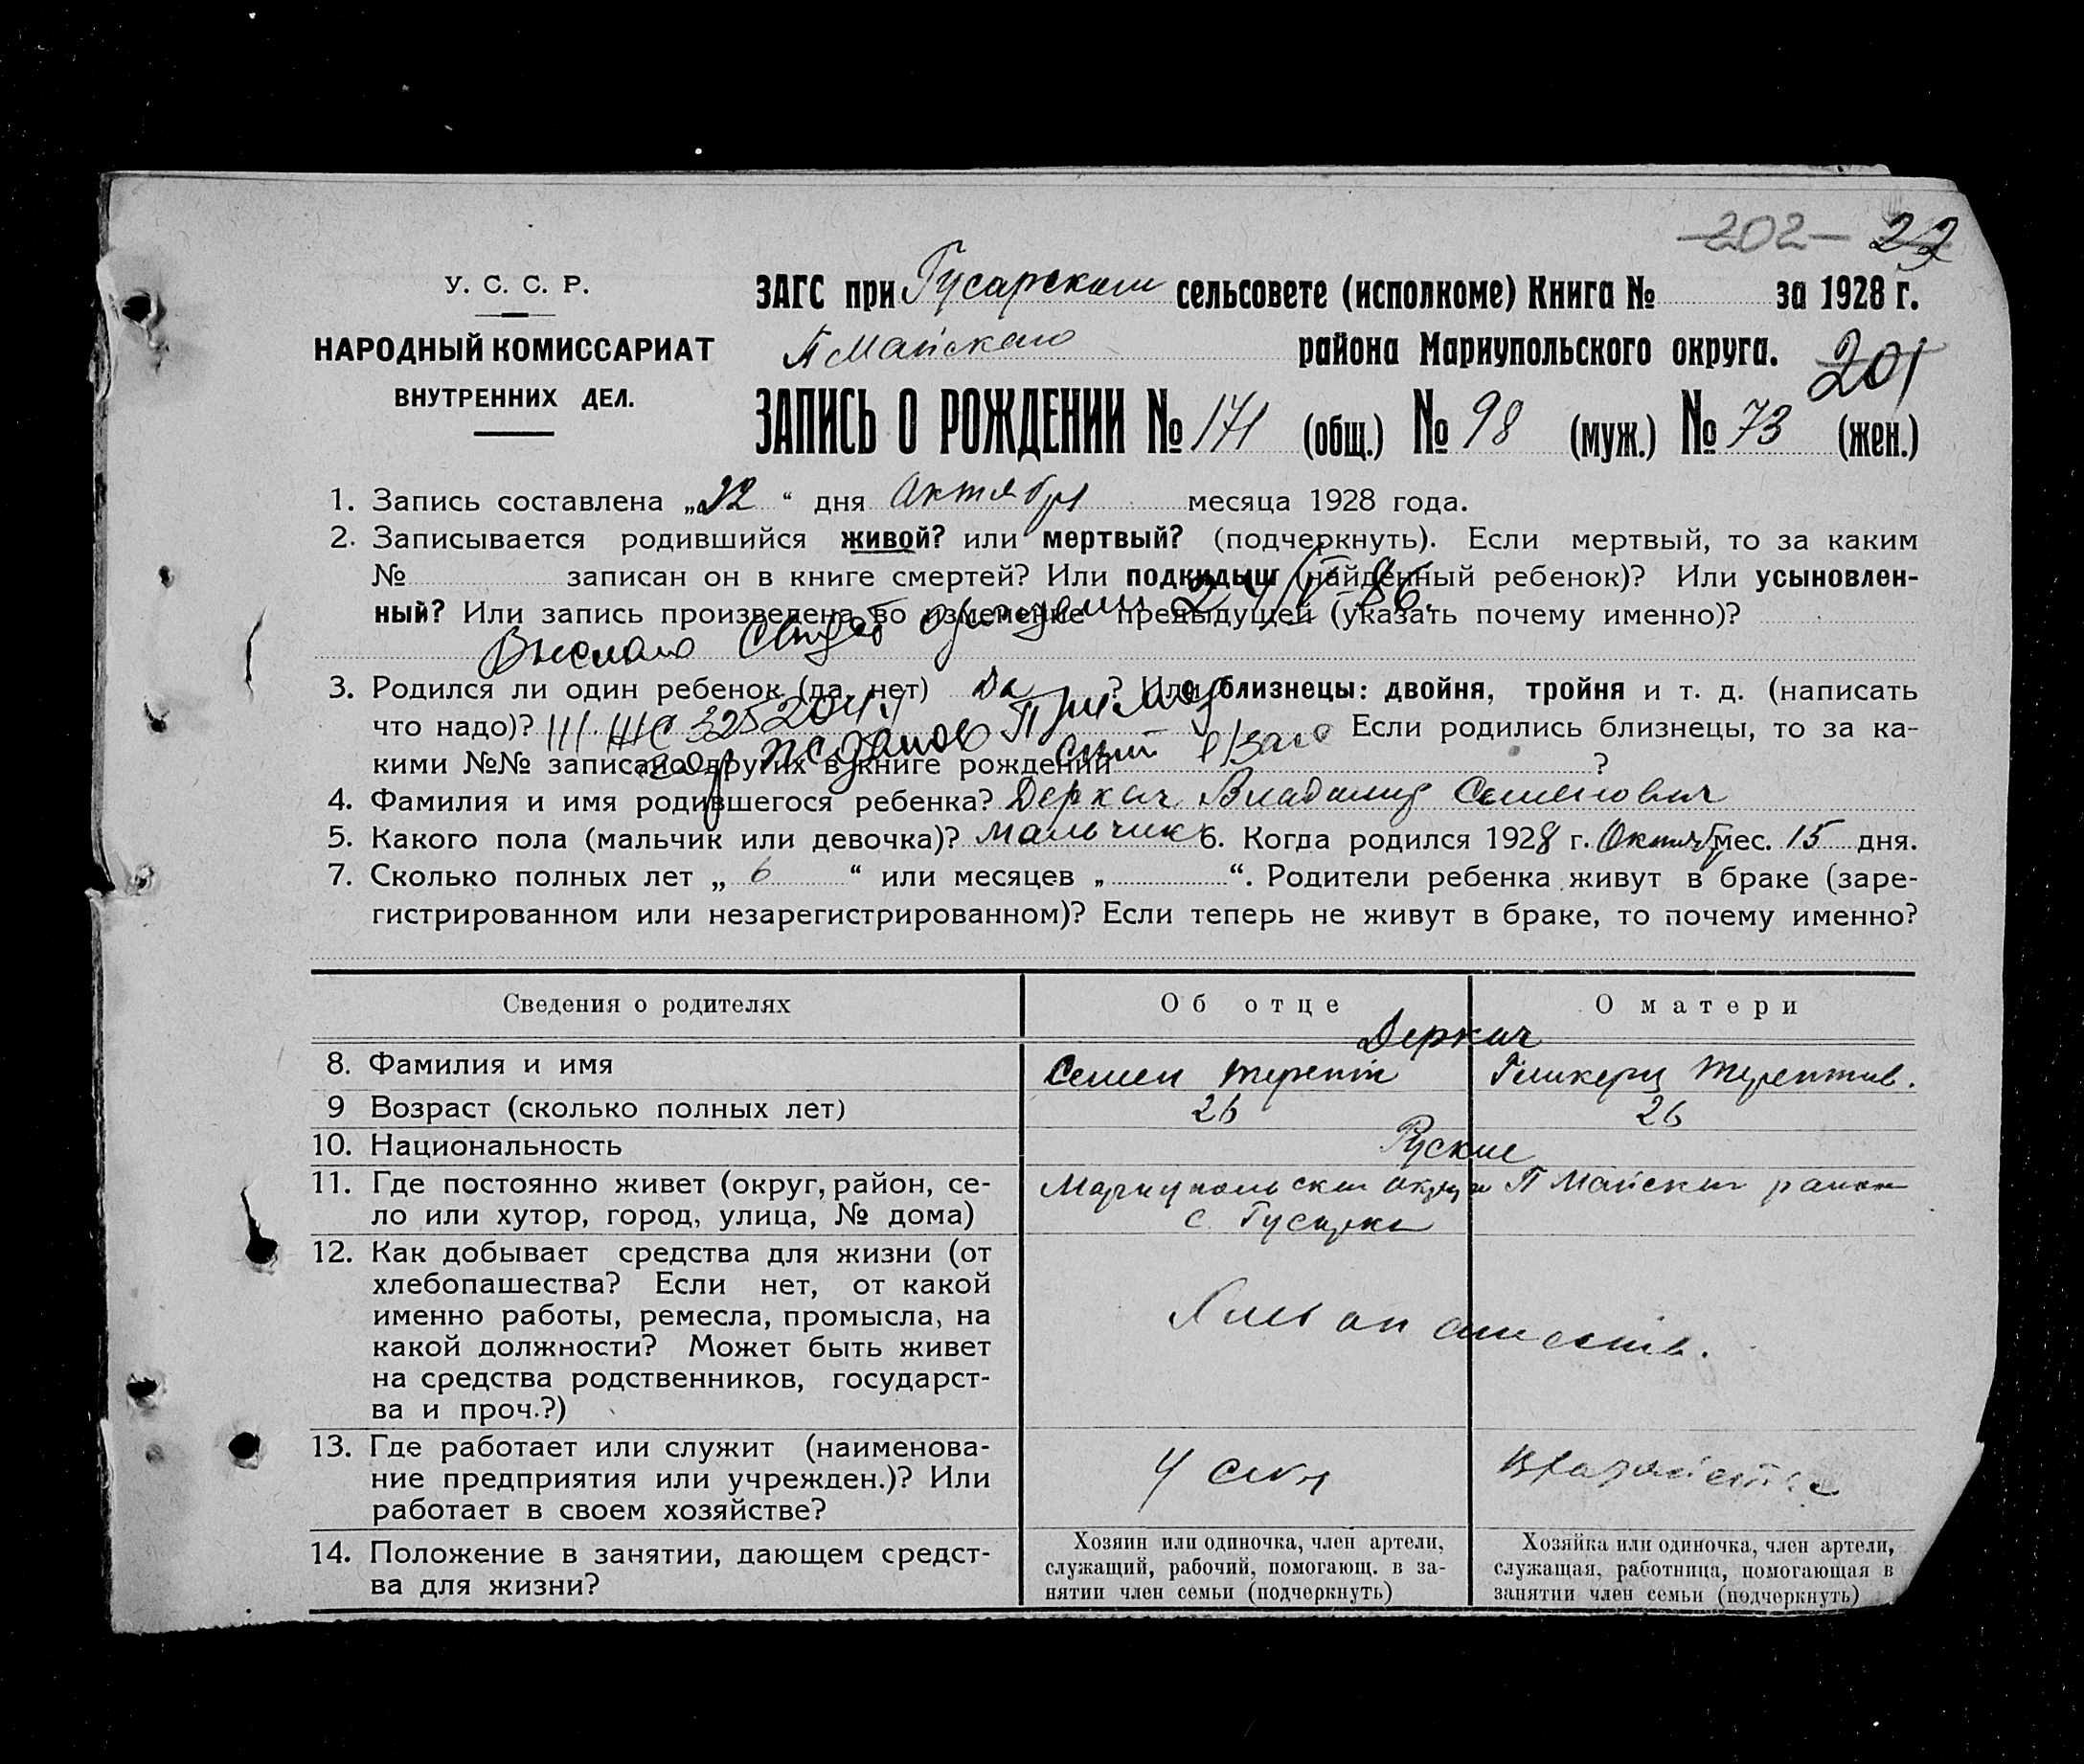 202 — 22
У. С. С. Р.
НАРОДНЫЙ КОМИССАРИАТ
ВНУТРЕННИХ ДЕЛ.
ЗАГС при Гусарском сельсовете (исполкоме) Книга № за 1928 г.
П Майского района Мариупольского округа.
201
ЗАПИСЬ О РОЖДЕНИИ № 171 (общ.) № 98 (муж.) № 73 (жен.)
1. Запись составлена „22“ дня Октября месяца 1928 года.
2. Записывается родившийся живой? или мертвый? (подчеркнуть). Если мертвый, то за каким
№ записан он в книге смертей? Или подкидыш (найденный ребенок)? Или усыновлен-
ный? Или запись произведена во изменение предыдущей (указать почему именно)?
Выслано свидет о рождении 24/IV-86.
3. Родился ли один ребенок (да, нет) Да ? Или близнецы: двойня, тройня и т. д. (написать
что надо)? Если родились близнецы, то за ка-
III-ЖС 325204
гор Жданов Примор
ский р/загс
кими №№ записано других в книге рождений ?
4. Фамилия и имя родившегося ребенка? Деркач Владимир Семенович
5. Какого пола (мальчик или девочка)? Мальчик 6. Когда родился 1928 г. Октябр мес. 15 дня.
7. Сколько полных лет „ 6 “ или месяцев „ “. Родители ребенка живут в браке (заре-
гистрированном или незарегистрированном)? Если теперь не живут в браке, то почему именно?
Сведения о родителях
Об отце
О матери
Деркач
8. Фамилия и имя
Семен
9 Возраст (сколько полных лет)
26
26
10. Национальность
Руские
11. Где постоянно живет (округ, район, се-
ло или хутор, город, улица, № дома)
Мариупольский П Майский район
с. Гусарка
12. Как добывает средства для жизни (от
хлебопашества? Если нет, от какой
именно работы, ремесла, промысла, на
какой должности? Может быть живет
на средства родственников, государст-
ва и проч.?)
13. Где работает или служит (наименова-
ние предприятия или учрежден.)? Или
работает в своем хозяйстве?
14. Положение в занятии, дающем средст-
ва для жизни?
Хозяин или одиночка, член артели,
служащий, рабочий, помогающ. в за-
нятии член семьи (подчеркнуть)
Хозяйка или одиночка, член артели,
служащая, работница, помогающая в
занятии член семьи (подчеркнуть)